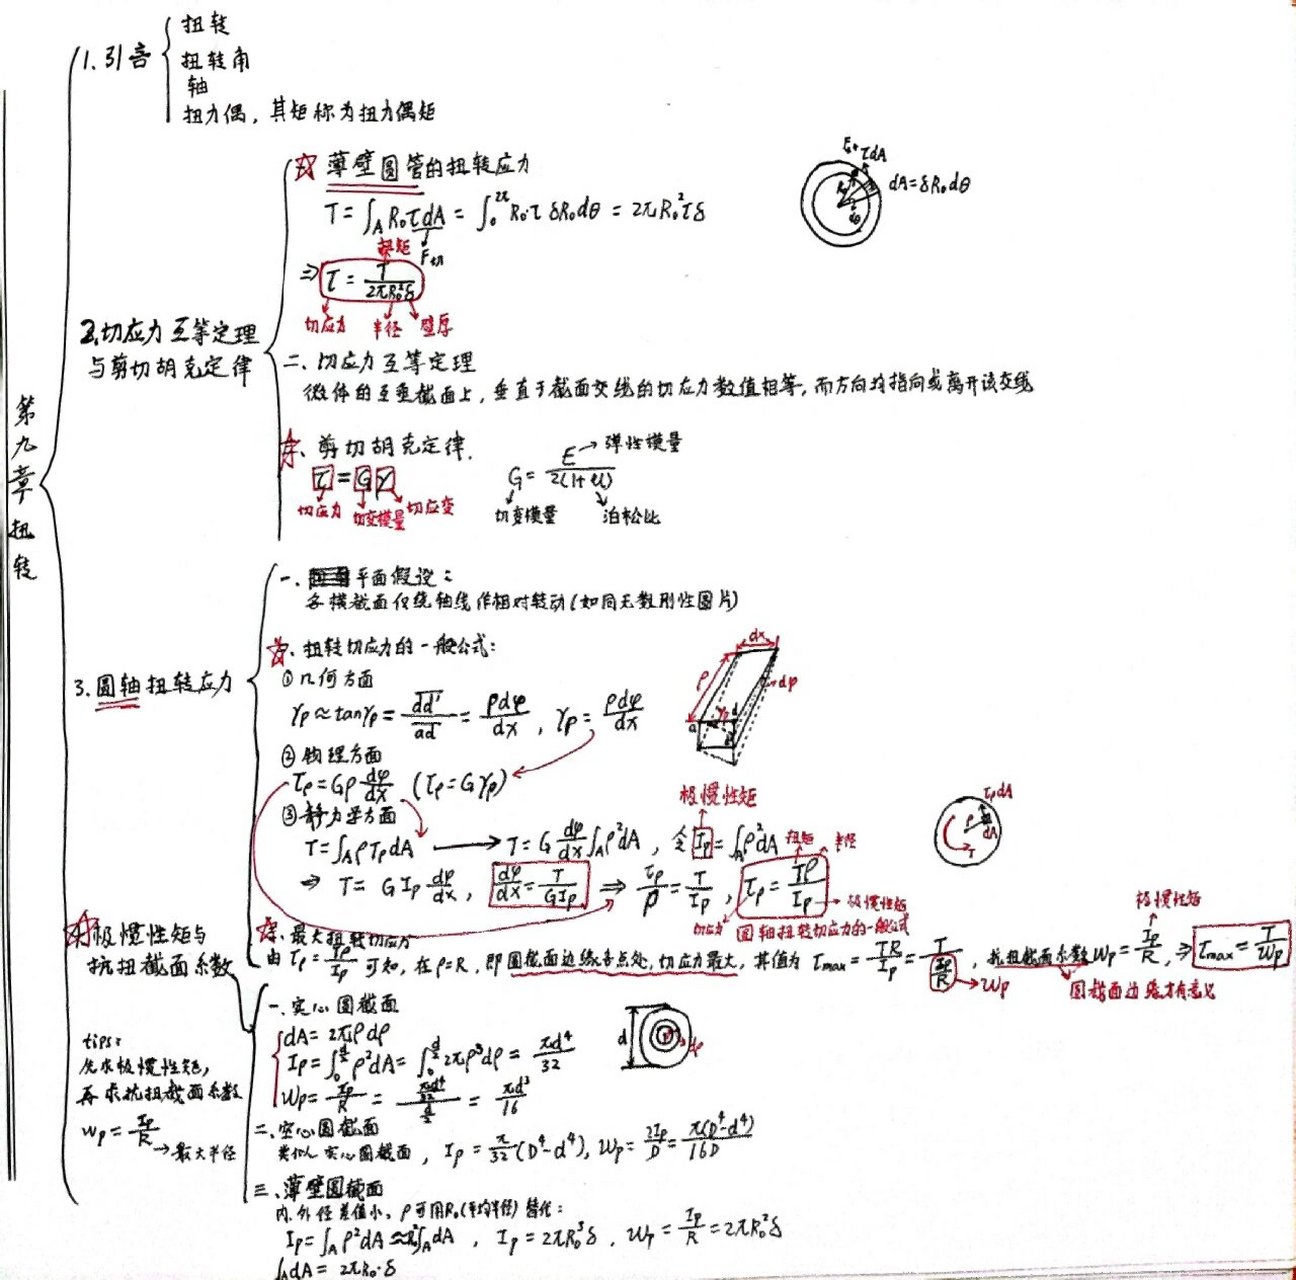 第九章 扭转
1. 引言
扭转
扭转角
轴
扭力偶，其矩称为扭力偶矩
2.切应力互等定理
与剪切胡克定律
一、薄壁圆管的扭转应力
T=∫_A R₀τdA = ∫₀^{2π} R₀τ δR₀dθ = 2πR₀²τδ
F切
扭矩
⇒ τ = T/(2πR₀²δ)
切应力 半径 壁厚
τdA
dA=δR₀dθ
二、切应力互等定理
微体的互垂截面上，垂直于截面交线的切应力数值相等，而方向均指向或离开该交线
三、剪切胡克定律.
τ=Gγ
切应力 切变模量 切应变
G = E/(2(1+μ))
弹性模量
切变模量 泊松比
3.圆轴扭转应力
一、平面假设：
各横截面仅绕轴线作相对转动(如同无数刚性圆片)
二、扭转切应力的一般公式：
①几何方面
γρ≈tanγρ = dd'/ad = ρdφ/dx , γρ = ρdφ/dx
②物理方面
τρ=Gρ dφ/dx (τρ=Gγρ)
③静力学方面
T=∫_A ρτρdA → T=G dφ/dx ∫_A ρ²dA , 令 Iρ = ∫_A ρ²dA
极惯性矩
⇒ T= GIρ dφ/dx , dφ/dx = T/(GIρ) ⇒ τρ/ρ = T/Iρ , τρ = Tρ/Iρ
扭矩 半径
极惯性矩
切应力 圆轴扭转切应力的一般公式
dx
ρ
dφ
a
d
τρdA
ρ
dA
T
三、最大扭转切应力
由 τρ = Tρ/Iρ 可知，在ρ=R，即圆截面边缘各点处，切应力最大，其值为 τmax = TR/Iρ = T/(Iρ/R) ，抗扭截面系数 Wρ = Iρ/R ，⇒ τmax = T/Wρ
极惯性矩
Wρ
圆截面边缘才有意义
4.极惯性矩与
抗扭截面系数
tips:
先求极惯性矩,
再求抗扭截面系数
Wρ = Iρ/R
→最大半径
一、实心圆截面
dA = 2πρdρ
Iρ = ∫₀^{d/2} ρ²dA = ∫₀^{d/2} 2πρ³dρ = πd⁴/32
Wρ = Iρ/R = (πd⁴/32)/(d/2) = πd³/16
d
dρ
二、空心圆截面
类似实心圆截面，Iρ = π/32 (D⁴-d⁴), Wρ = 2Iρ/D = π(D⁴-d⁴)/16D
三、薄壁圆截面
内、外径差值小、ρ可用R₀(平均半径)替代：
Iρ = ∫_A ρ²dA ≈ R₀²∫_A dA , Iρ = 2πR₀³δ , Wρ = Iρ/R = 2πR₀²δ
∫_A dA = 2πR₀·δ